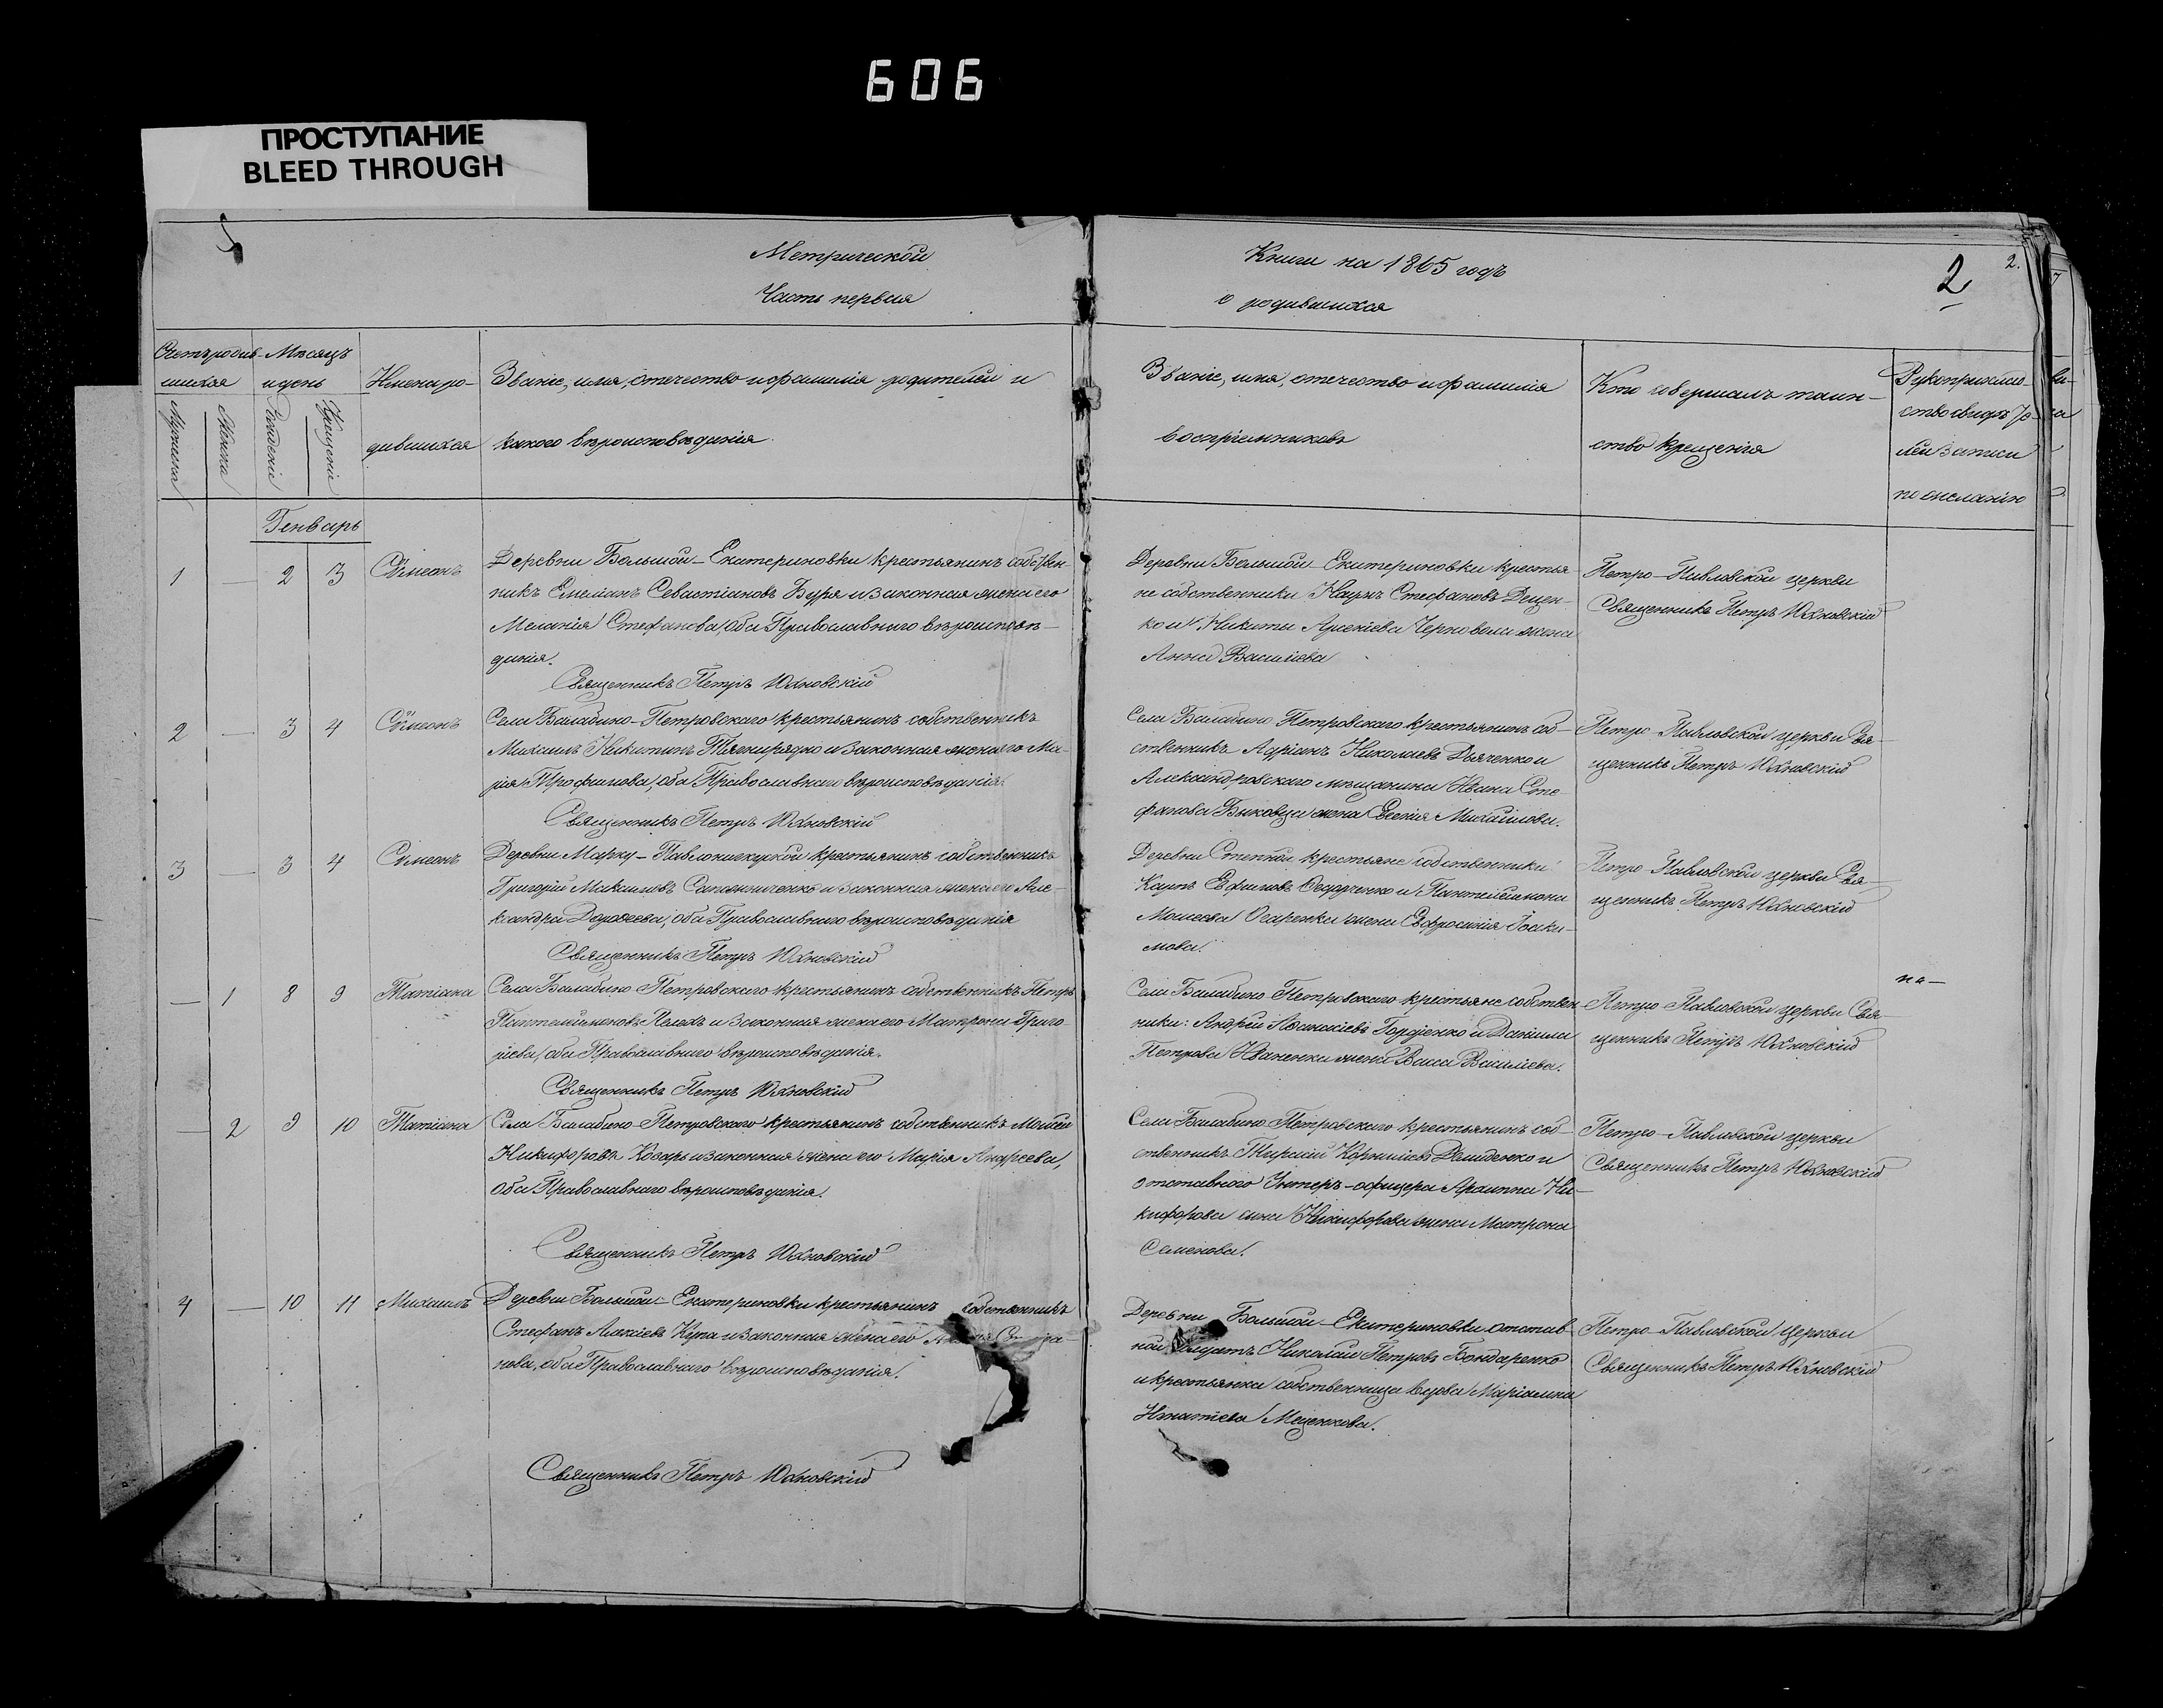 606
ПРОСТУПАНИЕ
BLEED THROUGH
Метрической
Часть первая
Книги на 1865 годъ
о родившихся
2
2.
Счетъ родив-
шихся
Мужеска
Женска
Мѣсяцъ
и день
Рожденія
Крещенія
Имена ро-
дившихся
Званіе, имя, отечество и фамилія родителей и
какого вѣроисповѣданія
Званіе, имя, отечество и фамилія
воспріемниковъ
Кто совершалъ таин-
ство крещенія
Рукоприклад-
ство свидѣте-
лей записи
по желанію
Генварь
1 — 2 3 Сѵмеонъ
Деревни Большой-Екатериновки крестьянинъ собствен
никъ Емеліанъ Севастіановъ Буря и законная жена его
Меланія Стефанова, оба Православнаго вѣроисповѣ-
данія.
Священникъ Петръ Юхновскій
Деревни Большой Екатериновки крестья
не собственники Наумъ Стефановъ Децен-
ко и Никиты Черновола жена
Анна Василіева
Петро-Павловской церкви
Священникъ Петръ Юхновскій
2 — 3 4 Сѵмеонъ
Села Балабино-Петровскаго крестьянинъ собственникъ
Михаилъ Никитинъ Тягнирядно и законная жена его Ма-
рія Трофимова, оба Православнаго вѣроисповѣданія.
Священникъ Петръ Юхновскій
Села Балабино Петровскаго крестьянинъ соб-
ственникъ Адріанъ Николаевъ Дьяченко и
Александровскаго мѣщанина Ивана Сте-
фанова Быковца жена Евгенія Михайлова.
Петро-Павловской церкви Свя-
щенникъ Петръ Юхновскій
3 — 3 4 Сѵмеонъ
Деревни Марку-Павлокичкуской крестьянинъ собственникъ
Григорій Максимовъ и законная жена его Але-
ксандра Дороѳеева, оба Православнаго вѣроисповѣданія
Священникъ Петръ Юхновскій
Деревни Степной крестьяне собственники
Карпъ Ефимовъ Ѳедорченко и Пантелеимона
Моисеева Огаренка жена Евфросинія Іоаки-
мова.
Петро-Павловской церкви Свя-
щенникъ Петръ Юхновскій
— 1 8 9 Татіана
Села Балабино-Петровскаго крестьянинъ собственникъ Петръ
Пантелеимоновъ Пелехъ и законная жена его Матрона Григо-
ріева, оба Православнаго вѣроисповѣданія.
Священникъ Петръ Юхновскій
Села Балабино Петровскаго крестьяне собствен
ники: Андрей Аѳанасіевъ Гордіенко и Даніила
Петрова Иваненка жена Васса Василіева.
Петро-Павловской церкви Свя-
щенникъ Петръ Юхновскій
на-
— 2 9 10 Татіана
Села Балабино-Петровскаго крестьянинъ собственникъ Моисей
Никифоровъ Косарь и законная жена его Марія Андреева,
оба Православнаго вѣроисповѣданія.
Священникъ Петръ Юхновскій
Села Балабино-Петровскаго крестьянинъ соб-
ственникъ Корниліевъ Демиденко и
отставного Унтеръ-офицера Архиппа Ни-
кифорова сына Никифорова жена Матрона
Семенова.
Петро-Павловской церкви
Священникъ Петръ Юхновскій
4 — 10 11 Михаилъ
Деревни Большой-Екатериновки крестьянинъ собственникъ
Стефанъ Алексіевъ Купа и законная жена его
нова, оба Православнаго вѣроисповѣданія.
Священникъ Петръ Юхновскій
Деревни Большой-Екатериновки отстав
ной Солдатъ Николай Петровъ Бондаренко
и крестьянка собственница вдова Маріамна
Игнатіева Меценкова.
Петро-Павловской церкви
Священникъ Петръ Юхновскій